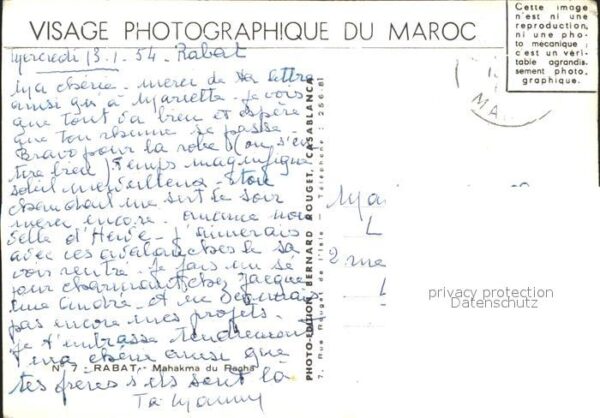 VISAGE PHOTOGRAPHIQUE DU MAROC
Cette image
n'est ni une
reproduction,
ni une pho-
to mécanique ;
c'est un véri-
table agrandis-
sement photo-
graphique.
Mercredi 13.1.54. Rabat
Ma chérie - merci de ta lettre
ainsi qu'à Mariette. Je vois
que tout va bien et espère
que ton rhume se passe
Bravo pour la robe (on s'en
tire bien) Temps magnifique
soleil merveilleux - ton
chandail me sert le soir
merci encore.
d'Hervé. J'aimerais
avec ces avalanches le sa
voir rentré. Je fais un sé
jour charmant chez Jacque
line André - et ne
pas encore mes projets.
Je t'embrasse tendrement
ma chérie ainsi que
tes frères s'ils sont là
Ta Mammy
N° 7 - RABAT - Mahakma du Pacha
PHOTO-EDITION, BERNARD ROUGET, CASABLANCA
7, Rue Rouget de l'Isle - Téléphone : 256-81
MA
2 rue
privacy protection
Datenschutz